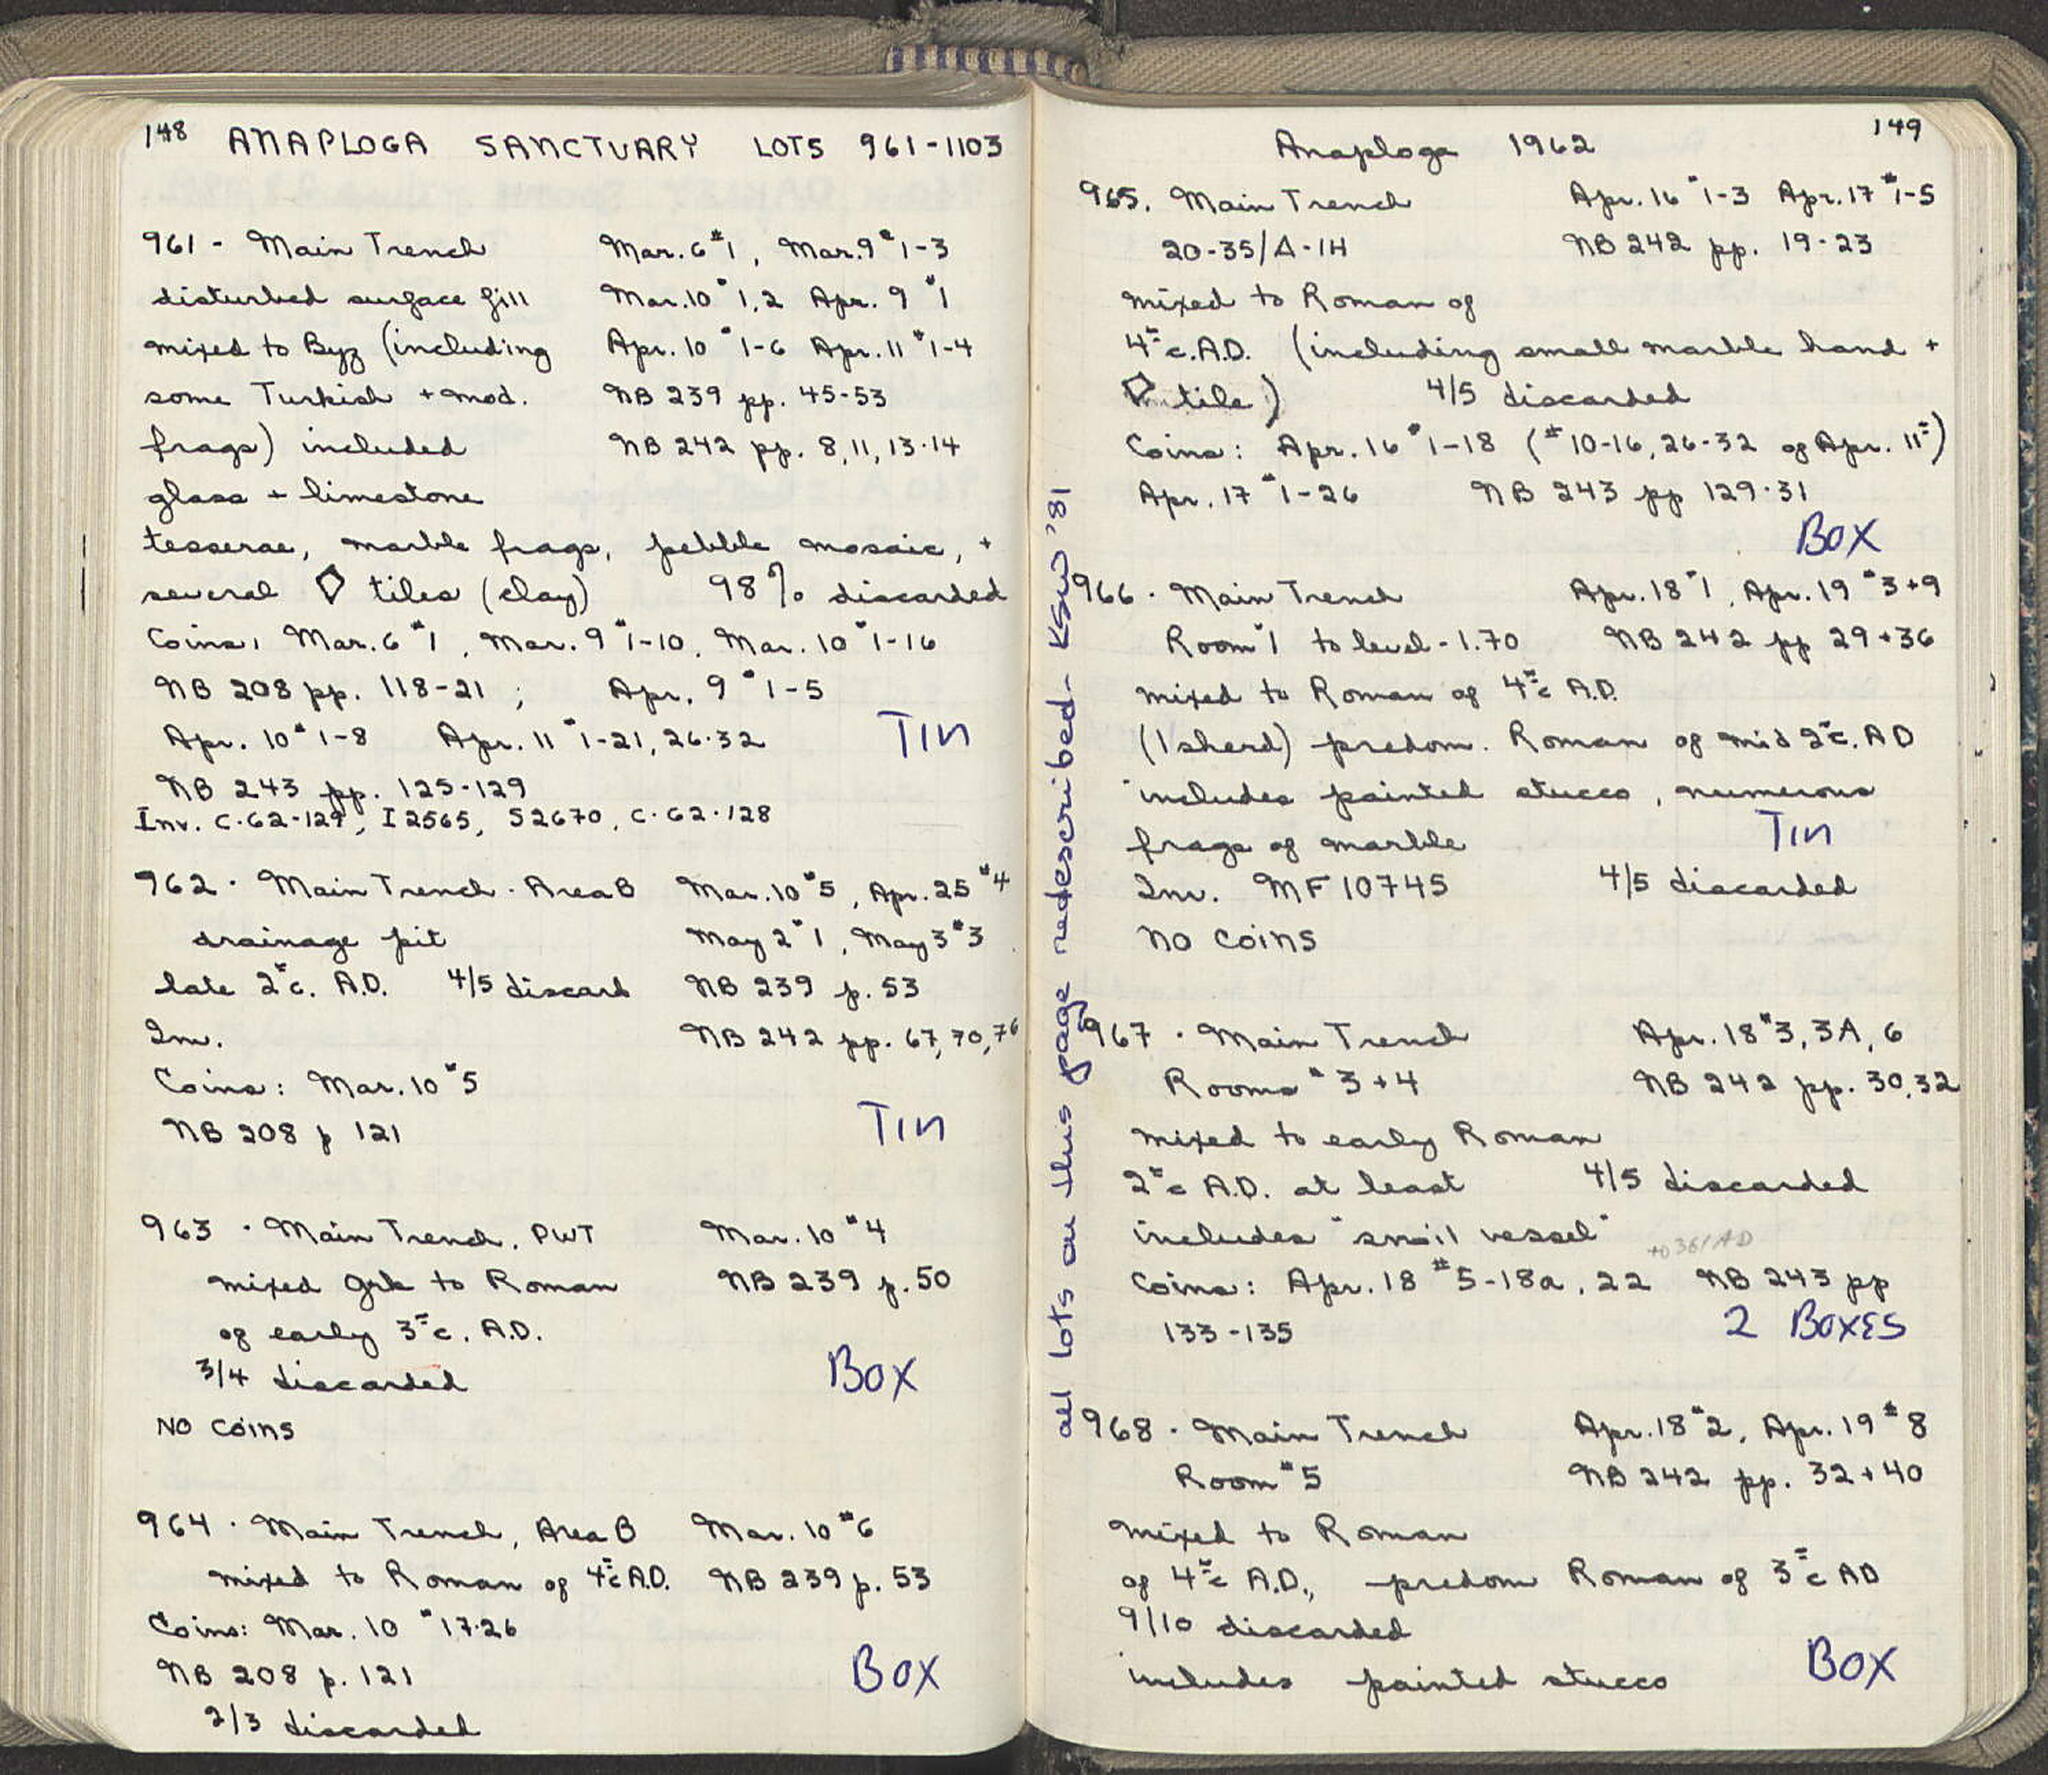 148 ANAPLOGA SANCTUARY LOTS 961-1103
961 - Main Trench Mar. 6 #1, Mar. 9 #1-3
disturbed surface fill Mar. 10 #1,2 Apr. 9 #1
mixed to Byz (including Apr. 10 #1-6 Apr. 11 #1-4
some Turkish + mod. NB 239 pp. 45-53
frags) included NB 242 pp. 8, 11, 13-14
glass + limestone
tesserae, marble frags, pebble mosaic, +
several ◊ tiles (clay) 98% discarded
Coins: Mar. 6 #1, Mar. 9 #1-10, Mar. 10 #1-16
NB 208 pp. 118-21; Apr. 9 #1-5
Apr. 10 #1-8 Apr. 11 #1-21, 26-32
TIN
NB 243 pp. 125-129
Inv. C-62-129, I 2565, S2670, C-62-128
962 - Main Trench - Area B Mar. 10 #5, Apr. 25 #4
drainage pit May 2 #1, May 3 #3
late 2nd c. A.D. 4/5 discard NB 239 p. 53
Inv. NB 242 pp. 67, 70, 76
Coins: Mar. 10 #5
NB 208 p 121
TIN
963 - Main Trench, PWT Mar. 10 #4
mixed Grk to Roman NB 239 p. 50
of early 3rd c. A.D.
3/4 discarded
BOX
NO COINS
964 - Main Trench, Area B Mar. 10 #6
mixed to Roman of 4th c A.D. NB 239 p. 53
Coins: Mar. 10 #17-26
NB 208 p. 121
BOX
2/3 discarded
149
Anaploga 1962
965. Main Trench Apr. 16 #1-3 Apr. 17 #1-5
20-35/A-1H NB 242 pp. 19-23
mixed to Roman of
4th c. A.D. (including small marble hand +
◊ tile) 4/5 discarded
Coins: Apr. 16 #1-18 (#10-16, 26-32 of Apr. 11th)
Apr. 17 #1-26 NB 243 pp 129-31
BOX
966 - Main Trench Apr. 18 #1, Apr. 19 #3+9
Room #1 to level -1.70 NB 242 pp 29+36
mixed to Roman of 4th c A.D.
(1 sherd) predom. Roman of mid 2nd c. AD
includes painted stucco, numerous
frags of marble
TIN
Inv. MF 10745 4/5 discarded
NO COINS
967 - Main Trench Apr. 18 #3, 3A, 6
Rooms #3+4 NB 242 pp. 30, 32
mixed to early Roman
2nd c A.D. at least 4/5 discarded
includes "snail vessel"
to 361 AD
Coins: Apr. 18 #5-18a, 22 NB 243 pp
133-135
2 BOXES
968 - Main Trench Apr. 18 #2, Apr. 19 #8
Room #5 NB 242 pp. 32+40
mixed to Roman
of 4th c A.D., predom Roman of 3rd c AD
9/10 discarded
includes painted stucco
BOX
all lots on this page redescribed - KSW '81